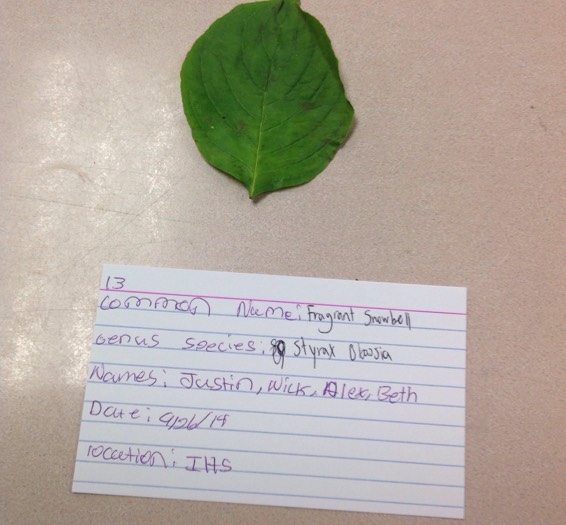 13
Common Name: Fragrant Snowbell
Genus species: Styrax Obassia
Names: Justin, Nick, Alex, Beth
Date: 9/26/14
location: IHS